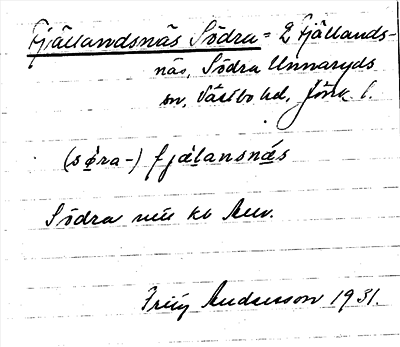 Fjällandsnäs Södra = 2 Fjällands-
näs, Södra Unnaryds
sn, Västbo hd, Jönk l.
(søra-) fjälansnäs
Södra
Andersson 1931.